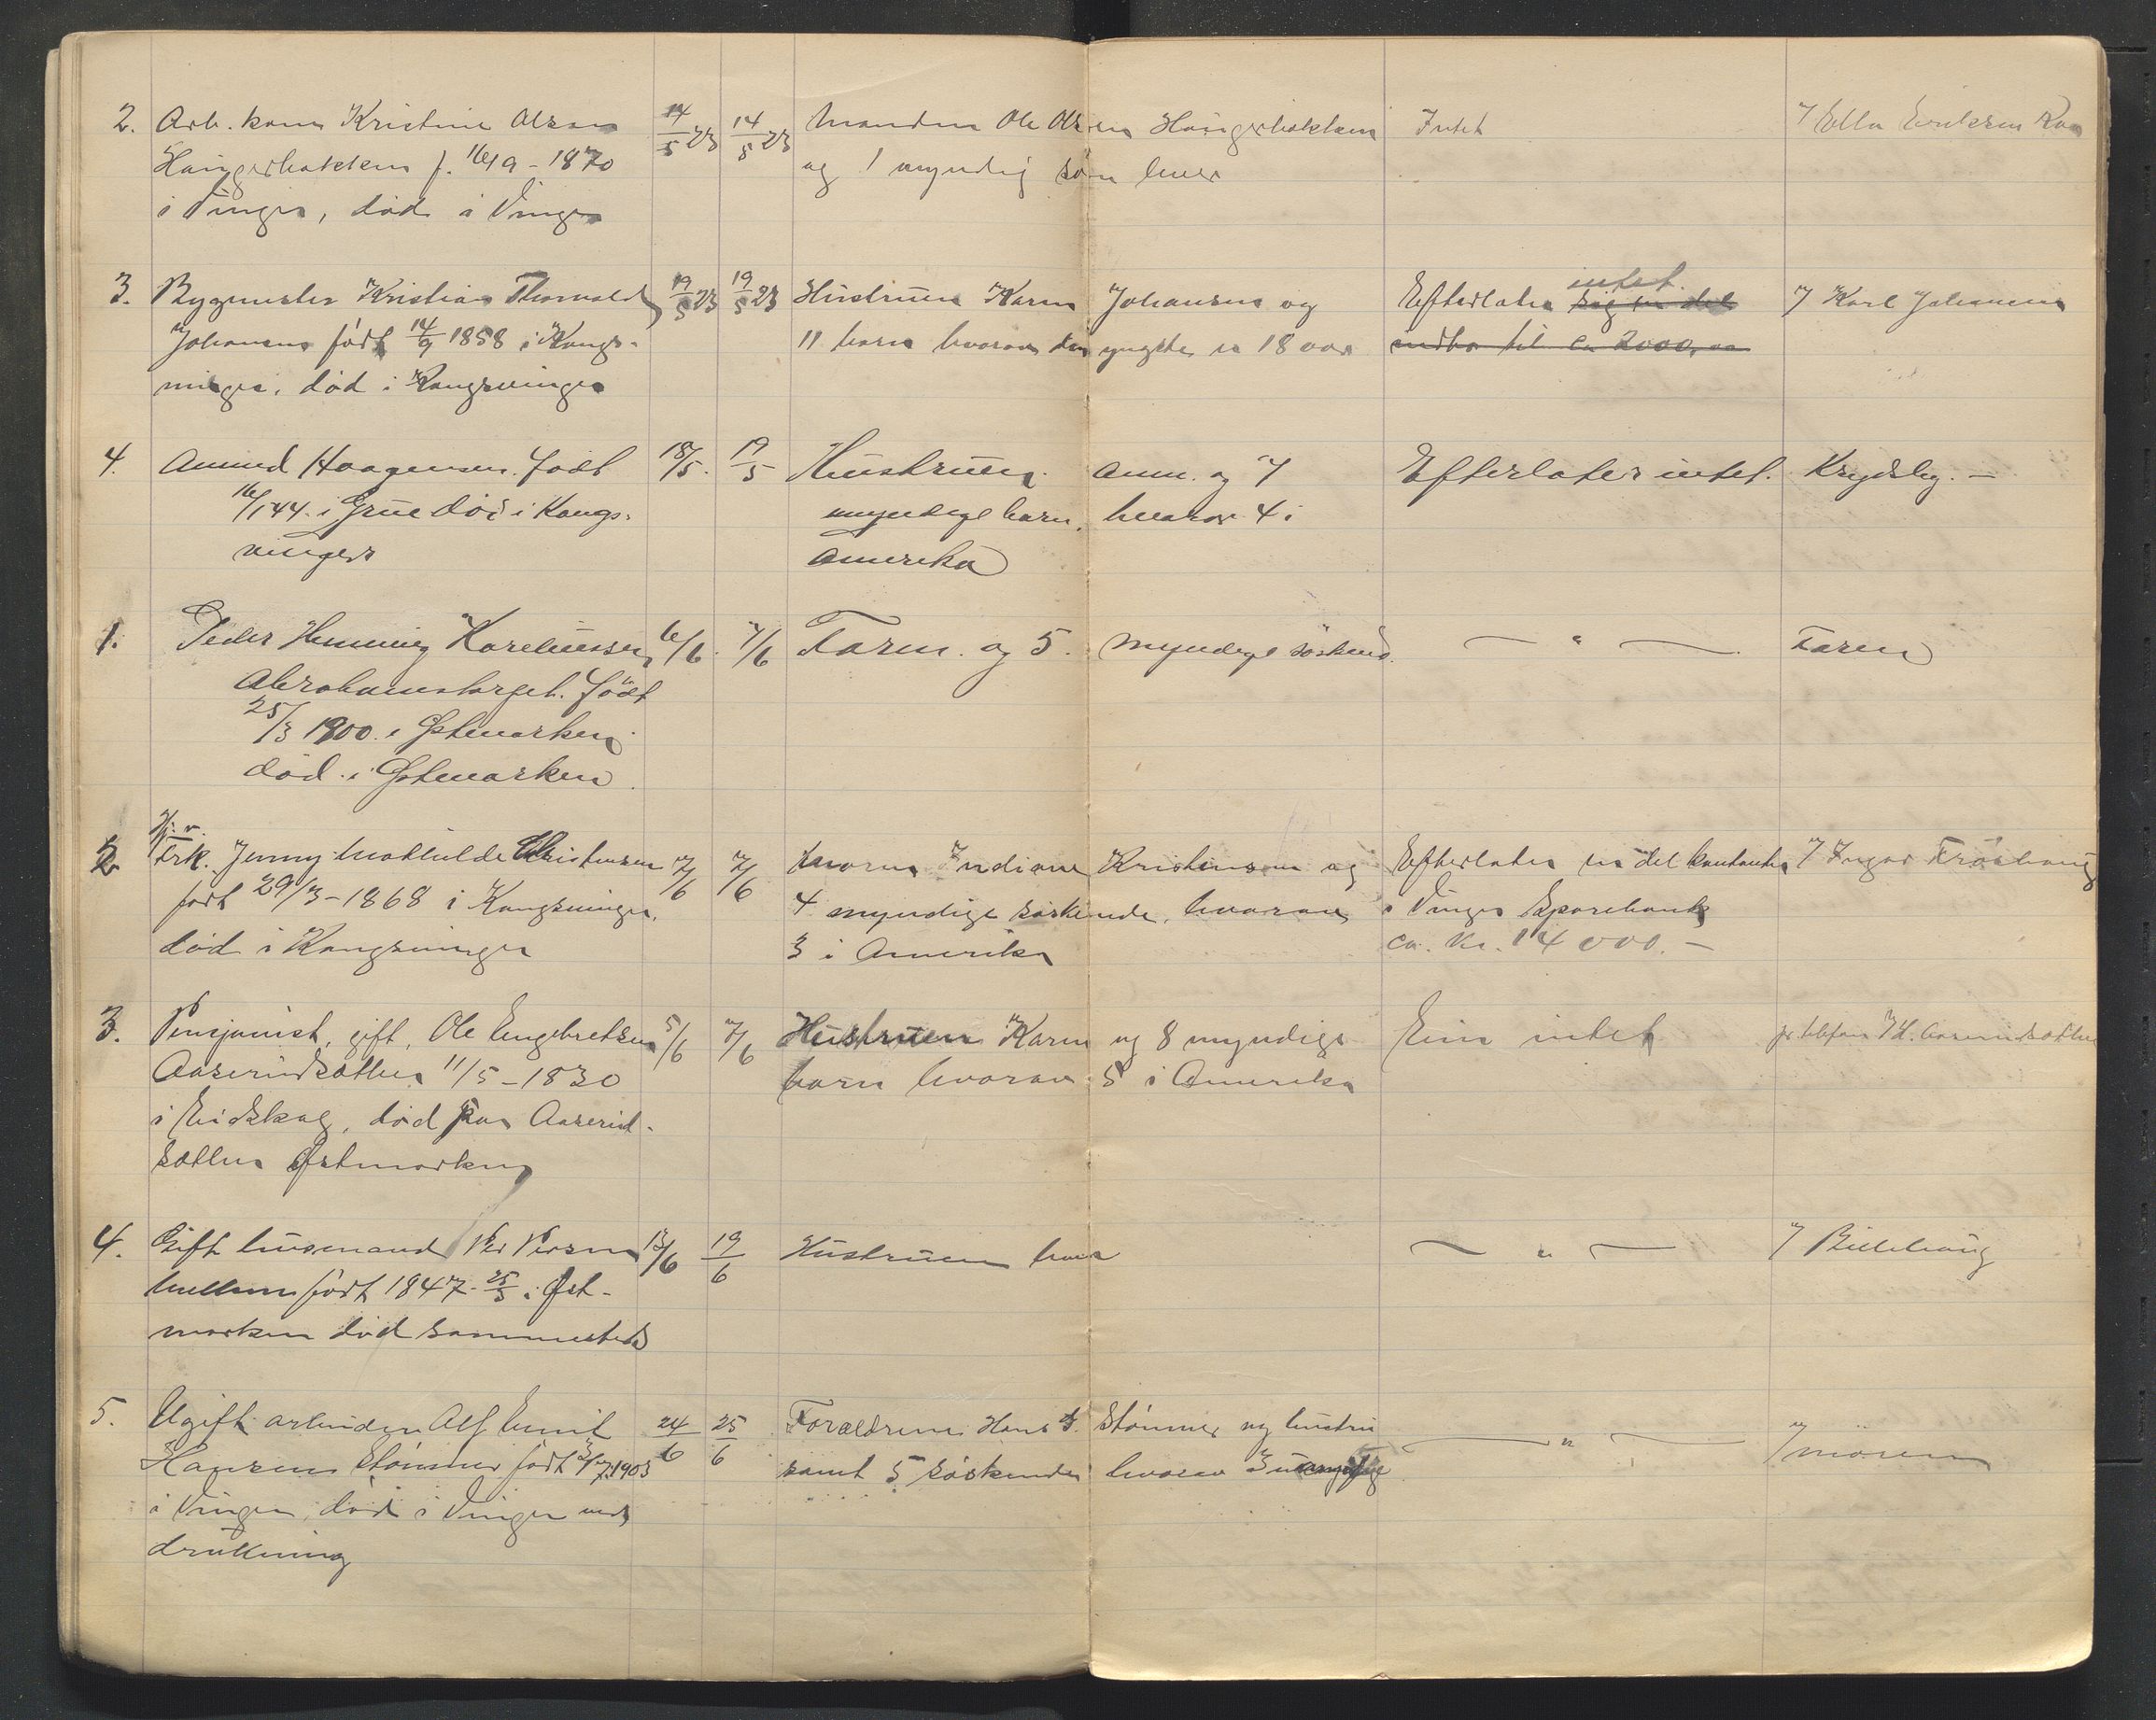 2. Arb. kone Kristine Olsen 14/5 23 14/5 23 Manden Ole Olsen Haugerbakken Intet 7 Ella Eriksen Roa
Haugerbakken f. 16/9 - 1870 og 1 myndig søn lever
i Vinger, død i Vinger
3. Bygmester Kristian Thorvald 19/5 23 19/5 23 Hustruen Karen Johansen og Efterlater sig en del intet. 7 Karl Johansen
Johansen født 14/9 1858 i Kongs- 11 barn hvorav den yngste er 18 aar indbo til ca 2000,00
vinger, død i Kongsvinger
4. Amund Haagensen. født 18/5. 19/5 Hustruen. Anne. og 7 Efterlater intet. Krydsby. —
16/1 44. i Grue død i Kongs- myndige barn, hvorav 4 i
vinger Amerika
1. Peder Henning Koreliussen 6/6. 7/6 Faren. og 5. myndige søskend. — " — . Faren
Abrahamstorpet. født
25/3 1900. i Østmarken
død. i Østmarken.
2 Hj. v.
Frk. Jenny Mathilde Christensen 7/6 7/6 Moren Indiane Kristensen og Efterlater en del kontanter 7 Ingar Frøshaug
født 29/3 - 1868 i Kongsvinger, 4 myndige søskende, hvorav i Vinger Sparebank
død i Kongsvinger 3 i Amerika ca. Kr. 14 000. —
3. Pensjonist, gift, Ole Engebretsen 5/6 7/6 Hustruen Karen og 8 myndige Eier intet pr. telefon
Aaserudsætten 11/5 - 1830 barn hvorav 5 i Amerika
i Eidskog, død paa Aaserud-
sætten Østmarken
4. Gift husmand Per Persen 13/6 19/6 Hustruen lever — " — 7 Billehaug
født 1847. 25/3 i Øst-
marken død sammesteds
5. Ugift arbeider Alf Emil 24/6 25/6 Forældrene Hans Stømner og hustru — " — 7 moren
Hansen Stømner født 3/7 1903 samt 5 søskende hvorav 3 umyndige
i Vinger, død i Vinger ved
drukning